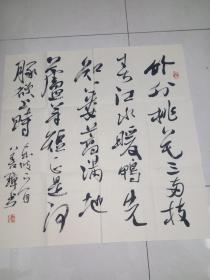 竹外桃花三两枝
春江水暖鸭先
知蒌蒿满地
芦芽短正是河
豚欲上时